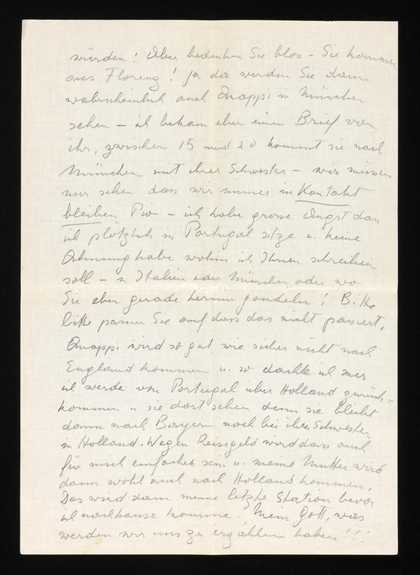 würden! Aber bedenken Sie blos - Sie kommen
aus Florenz! Ja da werden Sie dann
wahrscheinlich auch Quappi in München
sehen - ich bekam eben einen Brief von
ihr, zwischen 15 und 20 kommt sie nach
München mit ihrer Schwester - wir müssen
nur sehen dass wir immer in Kontakt
bleiben - ich habe grosse Angst dass
ich plötzlich in Portugal sitze u. keine
Ahnung habe wohin ich Ihnen schreiben
soll - in Italien oder München oder wo
Sie eben gerade herum gondeln! Bitte
bitte passen Sie auf dass das nicht passiert.
Quappi wird so gut wie sicher nicht nach
England kommen u. so dachte ich mir
ich werde von Portugal über Holland zurück-
kommen u. sie dort sehen denn sie bleibt
dann nach Bayern noch bei ihrer Schwester
in Holland. Wegen Reisegeld wird das auch
für mich einfacher sein u. meine Mutter wird
dann wohl auch nach Holland kommen.
Das wird dann meine letzte Station bevor
ich nachhause komme! Mein Gott, was
werden wir uns zu erzählen haben!!!